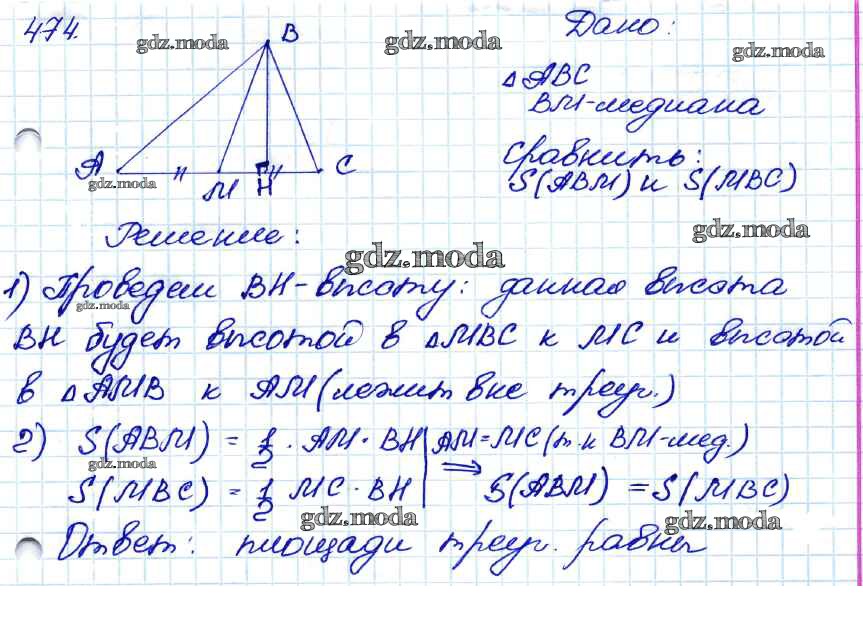 474.
B
Дано:
gdz.moda
gdz.moda
gdz.moda
△ABC
BM-медиана
A
C
gdz.moda
M
H
Сравнить:
S(ABM) и S(MBC)
gdz.moda
Решение:
gdz.moda
1) Проведем BH-высоту: данная высота
gdz.moda
BH будет высотой в △MBC к MC и высотой
в △AMB к AM (лежит вне треуг.)
2) S(ABM) = 1/2 · AM · BH | AM = MC (т.к BM-мед.)
gdz.moda
S(MBC) = 1/2 MC · BH | ⇒ S(ABM) = S(MBC)
gdz.moda
gdz.moda
Ответ: площади треуг. равны